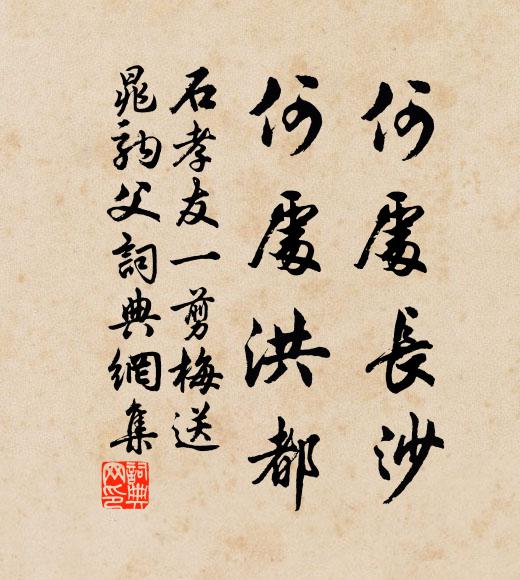 何處長沙
何處洪都
石孝友一剪梅送
晁駒父詞典網集
詞典網印